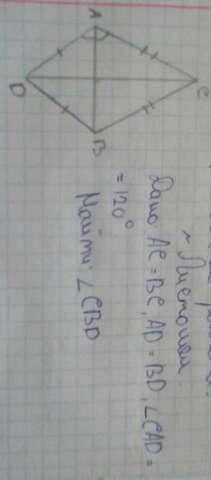 A
D
C
B
Дано: AC = BC, AD = BD, ∠CAD =
= 120°
Найти: ∠CBD